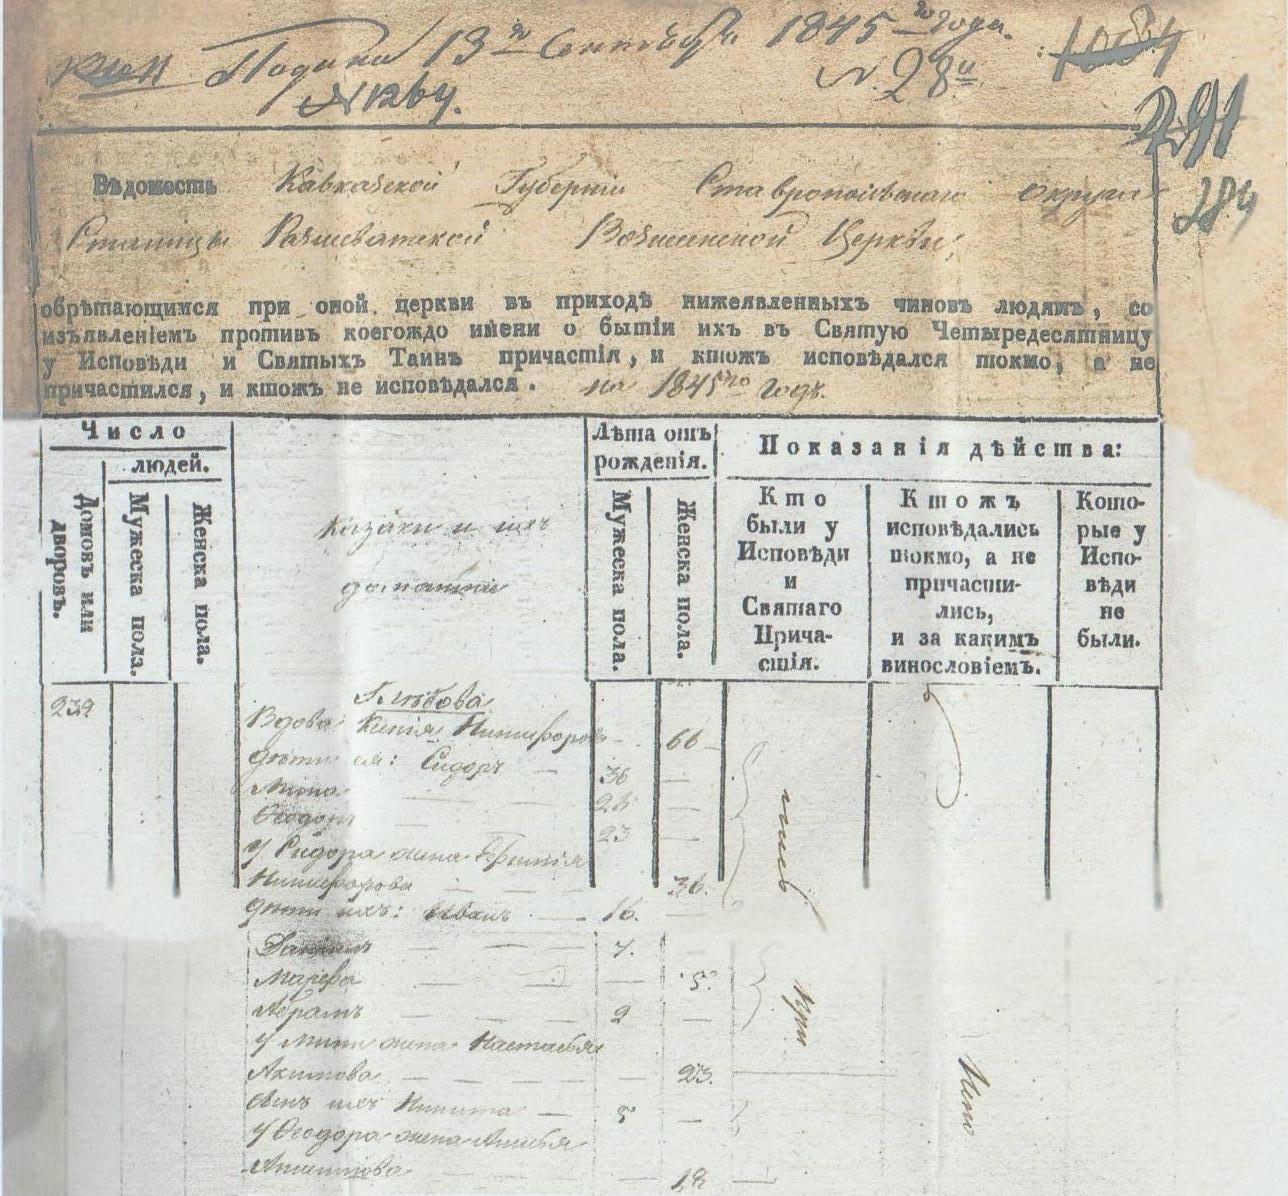 Подана 13го Сентября 1845го года.
№ 1264.
№ 28й
1084
291
284
Вѣдомость Кавказской Губерніи Ставропольскаго округа
Станицы Рашеватской Вознесенской Церкви,
обрѣтающимся при оной церкви въ приходѣ нижеявленныхъ чиновъ людямъ, со
изъявленіемъ противъ коегождо имени о бытіи ихъ въ Святую Четыредесятницу
у Исповѣди и Святыхъ Таинъ причастія, и ктожъ исповѣдался токмо, а не
причастился, и ктожъ не исповѣдался. на 1845го годъ.
Число
людей.
Домовъ или дворовъ.
Мужеска пола.
Женска пола.
Казаки и ихъ
домашніе
Лѣта отъ
рожденія.
Мужеска пола.
Женска пола.
Показанія дѣйства:
Кто
были у
Исповѣди
и
Святаго
Прича-
стія.
Ктожъ
исповѣдались
токмо, а не
причасти-
лись,
и за какимъ
винословіемъ.
Кото-
рые у
Испо-
вѣди
не
были.
239
Глѣбова
Вдова Ксенія Никифорова 66
Дѣти ея: Сидоръ 36
Мина 28
Ѳеодоръ 23
У Сидора жена
Никифорова 36.
Дѣти ихъ: Иванъ 16.
Даніилъ 7.
Марѳа 5.
Абрамъ 2
У Мины жена Настасья
Акимова 23.
Сынъ ихъ Никита 5
У Ѳеодора жена
19